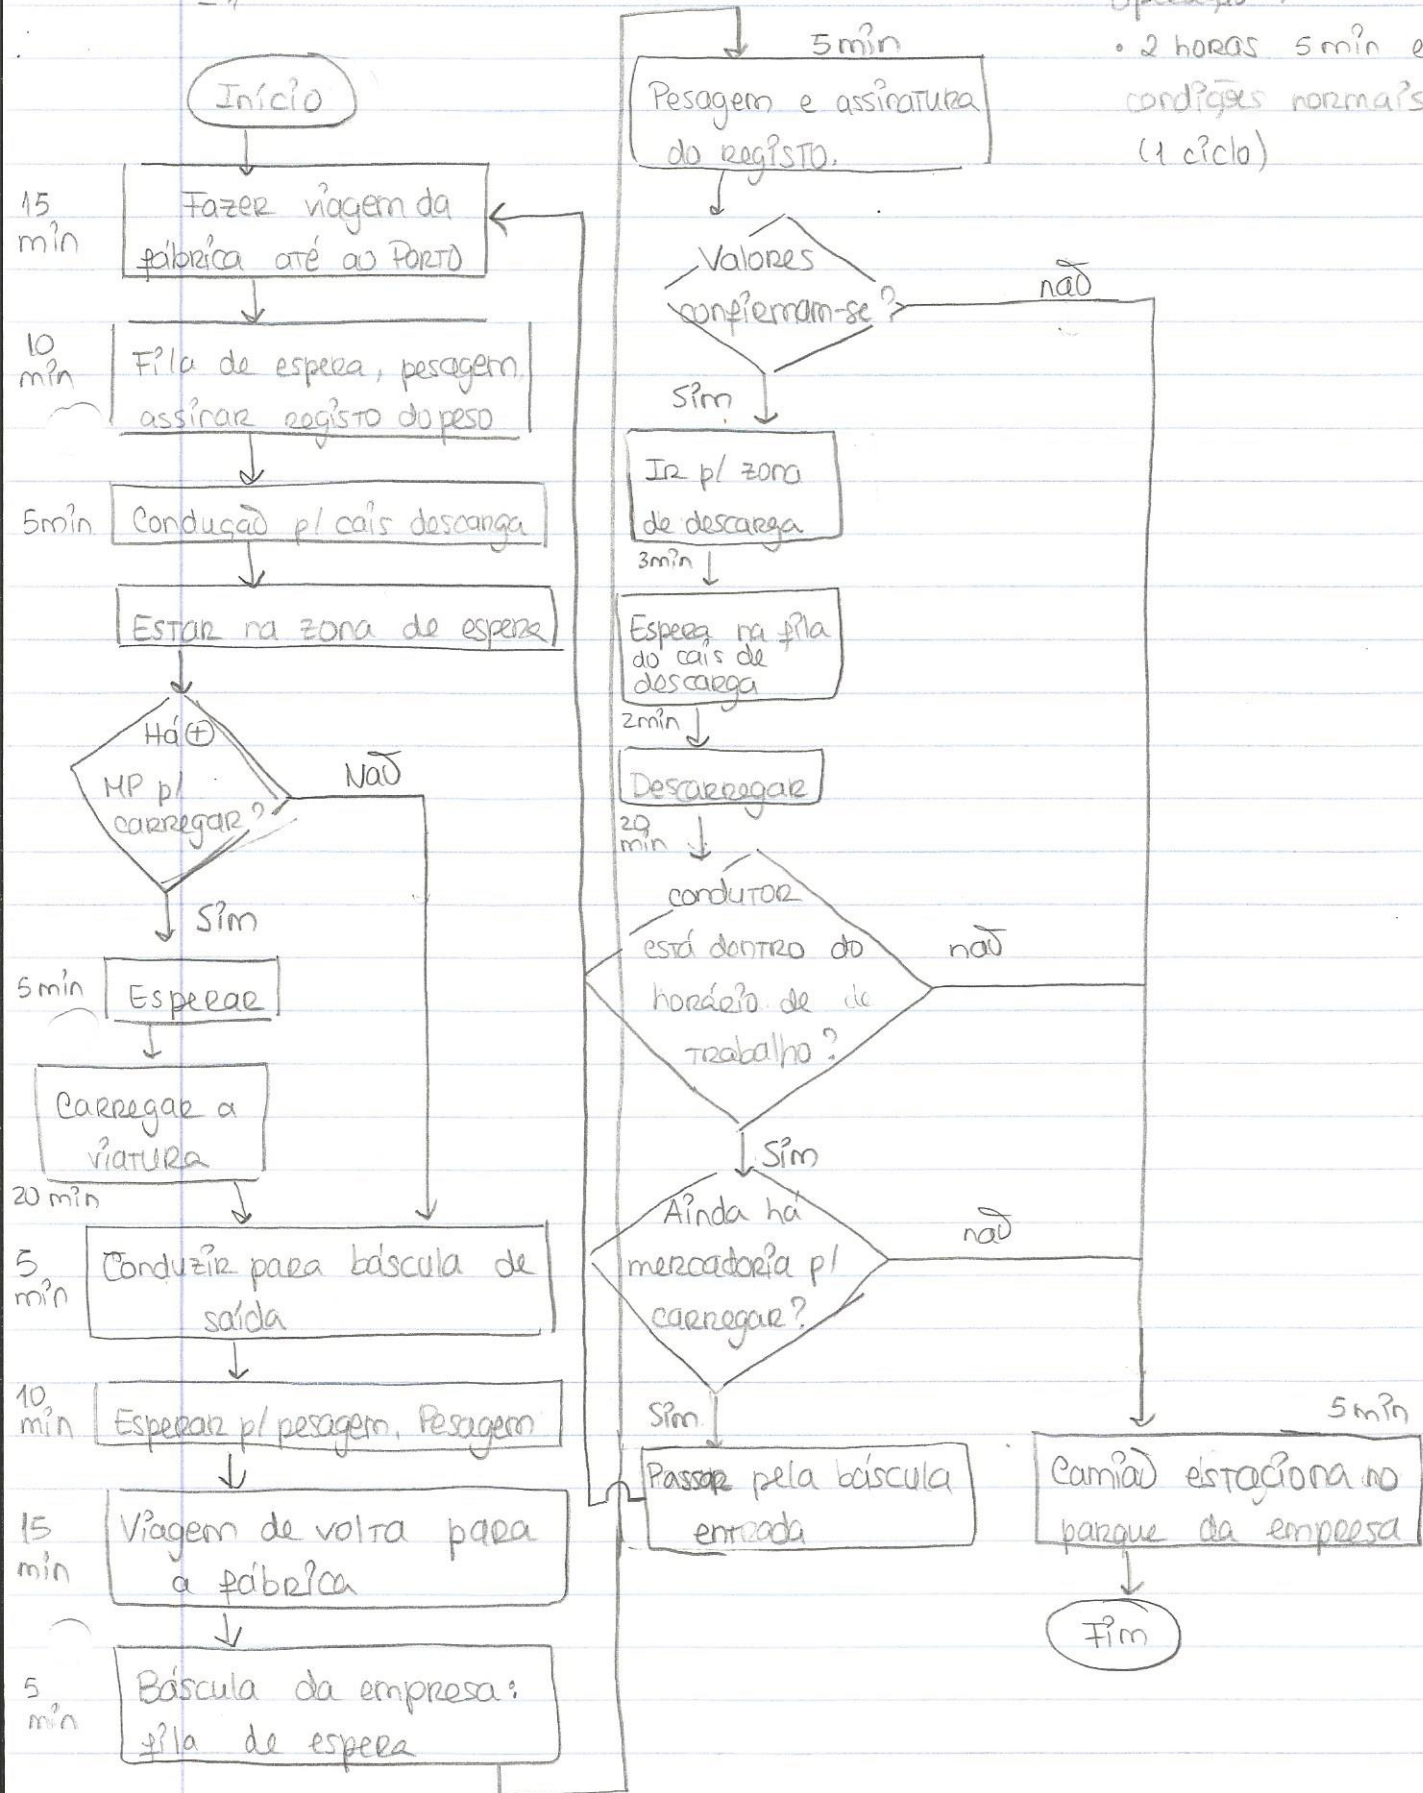 Início
15
min
Fazer viagem da
fábrica até ao Porto
10
min
Fila de espera, pesagem,
assinar registo do peso
5min
Condução p/ cais descarga
Estar na zona de espera
Há ⊕
MP p/
carregar?
Não
Sim
5min
Esperar
Carregar a
viatura
20 min
5
min
Conduzir para báscula de
saída
10
min
Esperar p/ pesagem. Pesagem
15
min
Viagem de volta para
a fábrica
5
min
Báscula da empresa:
fila de espera
5min
Pesagem e assinatura
do registo.
Valores
confirmam-se?
não
Sim
Ir p/ zona
de descarga
3min
Espera na fila
do cais de
descarga
2min
Descarregar
20
min
condutor
está dentro do
horário de de
trabalho?
não
Sim
Ainda há
mercadoria p/
carregar?
não
Sim
Passar pela báscula
entrada
5min
Camião estaciona no
parque da empresa
Fim
• 2 horas 5min e
condições normais
(1 ciclo)